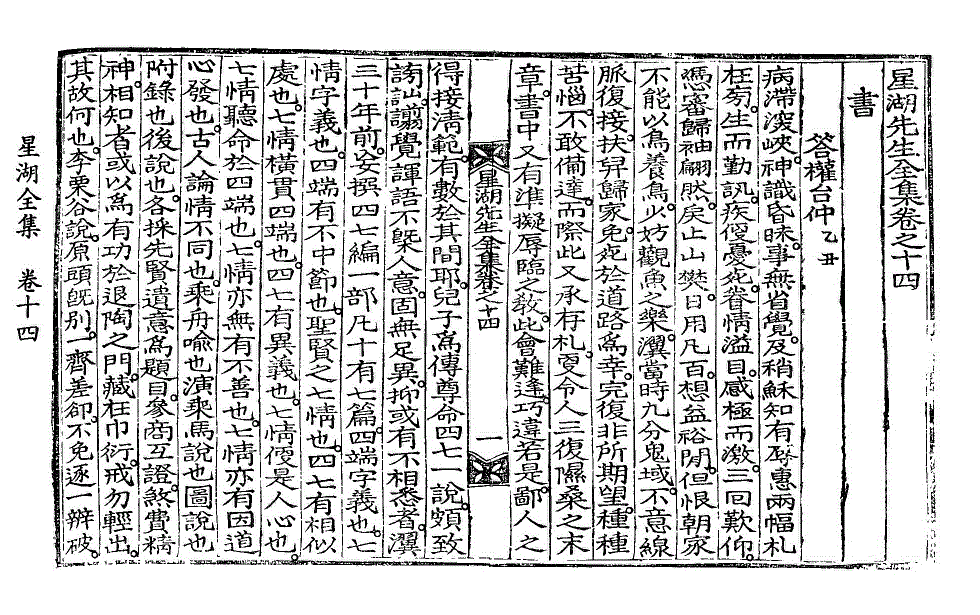 星湖先生全集卷之十四
書
答權台仲 乙丑
病滯深峽。神識昏昧。事無省覺。及稍穌知有辱惠兩幅札
枉芴。生而勤訊。疾傁憂死。眷情溢目。感極而激。三回歎仰。
憑審歸袖翩然。戾止山樊。日用凡百。想益裕閒。但恨朝家
不能以鳥養鳥。少妨觀魚之樂。瀷當時九分鬼域。不意線
脈復接。扶舁歸家。免死於道路爲幸。完復非所期望。種種
苦惱不敢備達。而際此又承存札。奚令人三復隰桑之末
章。書中又有準擬辱臨之敎。此會難逢。巧違若是。鄙人之
星湖先生全集卷之十四
一
得接淸範。有數於其間耶。兒子爲傳尊命四七一說。頗致
謗訕。譾覺諢語不槩人意。固無足異。抑或有不相悉者。瀷
三十年前。妄撰四七編一部凡十有七篇。四端字義也。七
情字義也。四端有不中節也。聖賢之七情也。四七有相似
處也。七情橫貫四端也。四七有異義也。七情便是人心也。
七情聽命於四端也。七情亦無有不善也。七情亦有因道
心發也。古人論情不同也。乘舟喩也。演乘馬說也。圖說也
附錄也。後說也。各採先賢遺意爲題目。參商互證。煞費精
神。相知者或以爲有功於退陶之門。藏在巾衍。戒勿輕出。
其故何也。李栗谷說。原頭旣別。一齊差却。不免逐一辨破。
星湖全集 卷十四